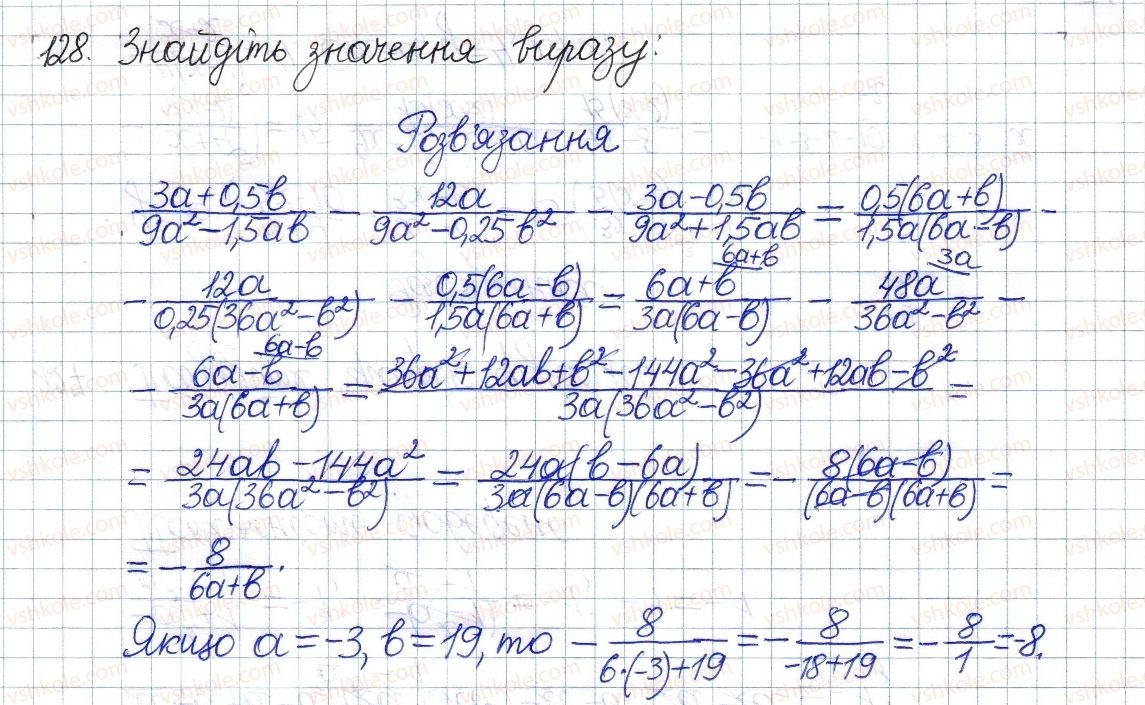 128. Знайдіть значення виразу:
Розв'язання
(3a+0,5b)/(9a²-1,5ab) - 12a/(9a²-0,25b²) - (3a-0,5b)/(9a²+1,5ab) = 0,5(6a+b)/1,5a(6a-b) -
- 12a/0,25(36a²-b²) - 0,5(6a-b)/1,5a(6a+b) = (6a+b)/3a(6a-b) ^(6a+b) - 48a/(36a²-b²) ^(3a) -
- (6a-b)/3a(6a+b) ^(6a-b) = (36a²+12ab+b²-144a²-36a²+12ab-b²)/3a(36a²-b²) =
= (24ab-144a²)/3a(36a²-b²) = 24a(b-6a)/3a(6a-b)(6a+b) = - 8(6a-b)/(6a-b)(6a+b) =
= - 8/(6a+b).
Якщо a=-3, b=19, то - 8/(6·(-3)+19) = - 8/(-18+19) = - 8/1 = -8.
vshkole.com